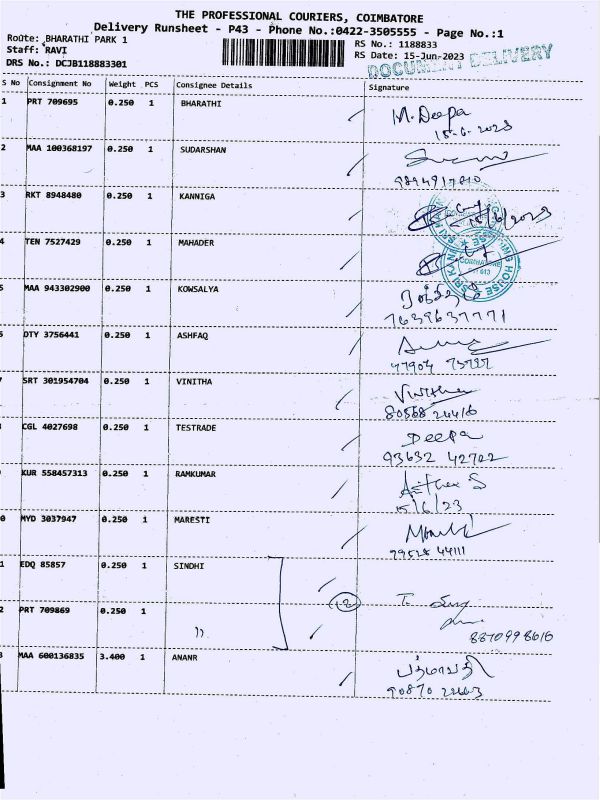 THE PROFESSIONAL COURIERS, COIMBATORE
Delivery Runsheet - P43 - Phone No.:0422-3505555 - Page No.:1
Route: BHARATHI PARK 1
Staff: RAVI
DRS No.: DCJB118883301
RS No.: 1188833
RS Date: 15-Jun-2023
DOCUMENT DELIVERY
S No Consignment No Weight PCS Consignee Details Signature
1 PRT 709695 0.250 1 BHARATHI M. Deepa
15-6-2023
2 MAA 100368197 0.250 1 SUDARSHAN
9894917810
3 RKT 8948480 0.250 1 KANNIGA 15/6/2023
4 TEN 7527429 0.250 1 MAHADER
5 MAA 943302900 0.250 1 KOWSALYA
7639637771
6 DTY 3756441 0.250 1 ASHFAQ
7 SRT 301954704 0.250 1 VINITHA Vinitha
80568 24416
8 CGL 4027698 0.250 1 TESTRADE Deepa
93632 42722
KUR 558457313 0.250 1 RAMKUMAR
15/6/23
0 MYD 3037947 0.250 1 MARESTI
99528 44111
1 EDQ 85857 0.250 1 SINDHI
2 PRT 709869 0.250 1 "
8870998616
3 MAA 600136835 3.400 1 ANANR பத்மாவதி